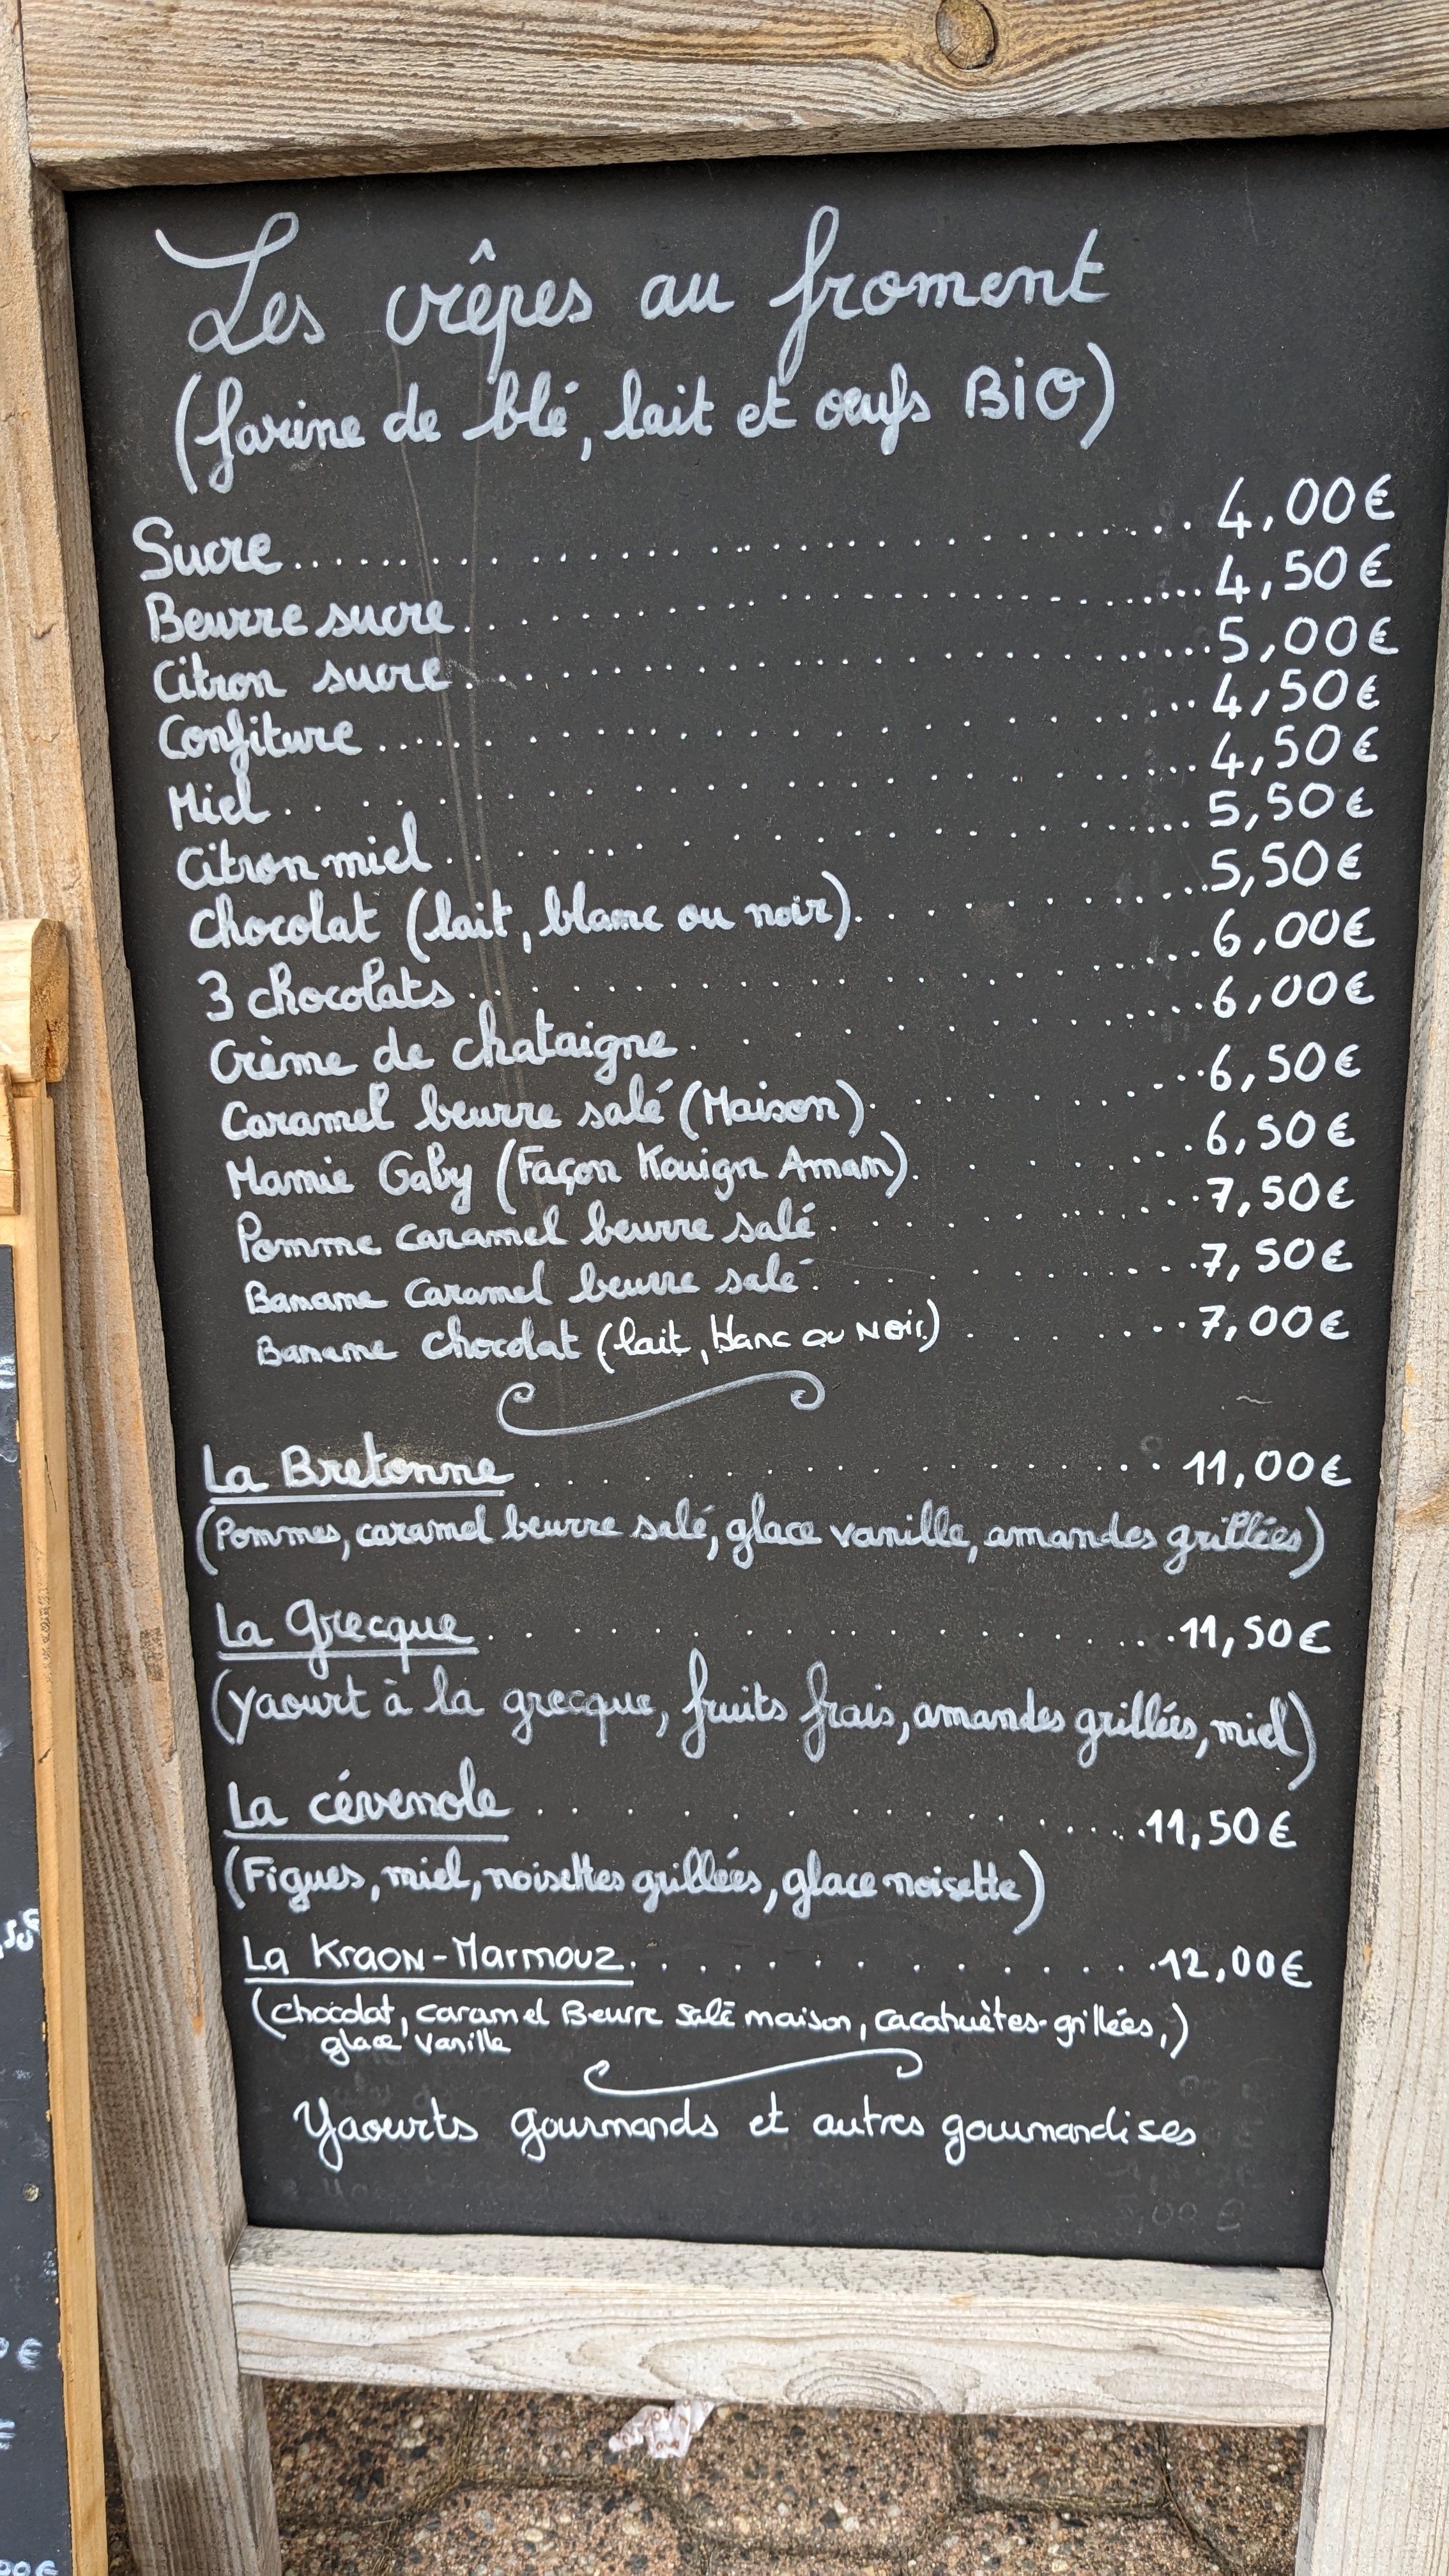 Les crêpes au froment
(farine de blé, lait et œufs BiO)
Sucre 4,00€
Beurre sucre 4,50€
Citron sucre 5,00€
Confiture 4,50€
Miel 4,50€
Citron miel 5,50€
Chocolat (lait, blanc ou noir) 5,50€
3 chocolats 6,00€
Crème de chataigne 6,00€
Caramel beurre salé (Maison) 6,50€
Mamie Gaby (Façon Kouign Amam) 6,50€
Pomme caramel beurre salé 7,50€
Banane caramel beurre salé 7,50€
Banane chocolat (lait, blanc ou Noir) 7,00€
La Bretonne 11,00€
(Pommes, caramel beurre salé, glace vanille, amandes grillées)
La Grecque 11,50€
(yaourt à la grecque, fruits frais, amandes grillées, miel)
La cévenole 11,50€
(Figues, miel, noisettes grillées, glace noisette)
La Kraon-Marmouz 12,00€
(chocolat, caramel Beurre Salé maison, cacahuètes grillées,)
glace vanille
Yaourts gourmands et autres gourmandises